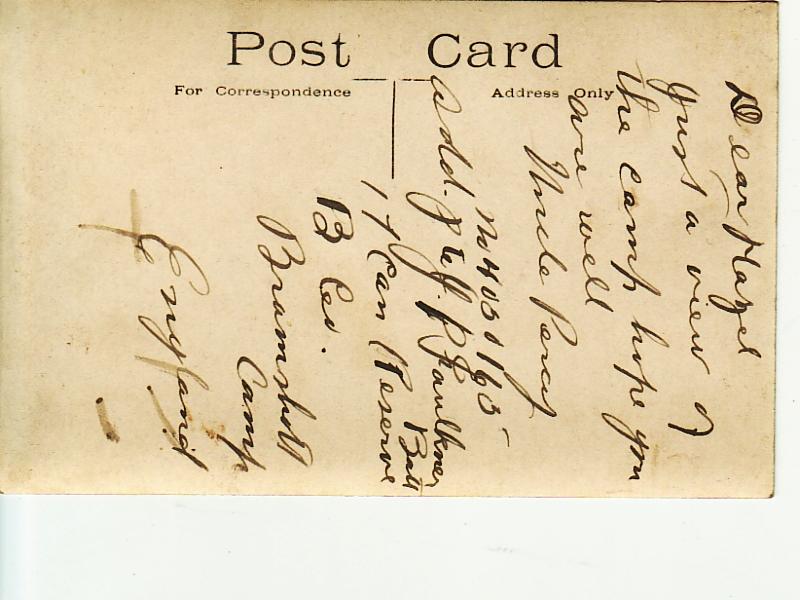 Post Card
For Correspondence
Address Only
Dear Hazel
Just a view of
the camp hope you
are well
Uncle Percy
No
Add. J. P. Faulkner
17 Can Reserve Batt
B Co.
Bramshott
Camp
England